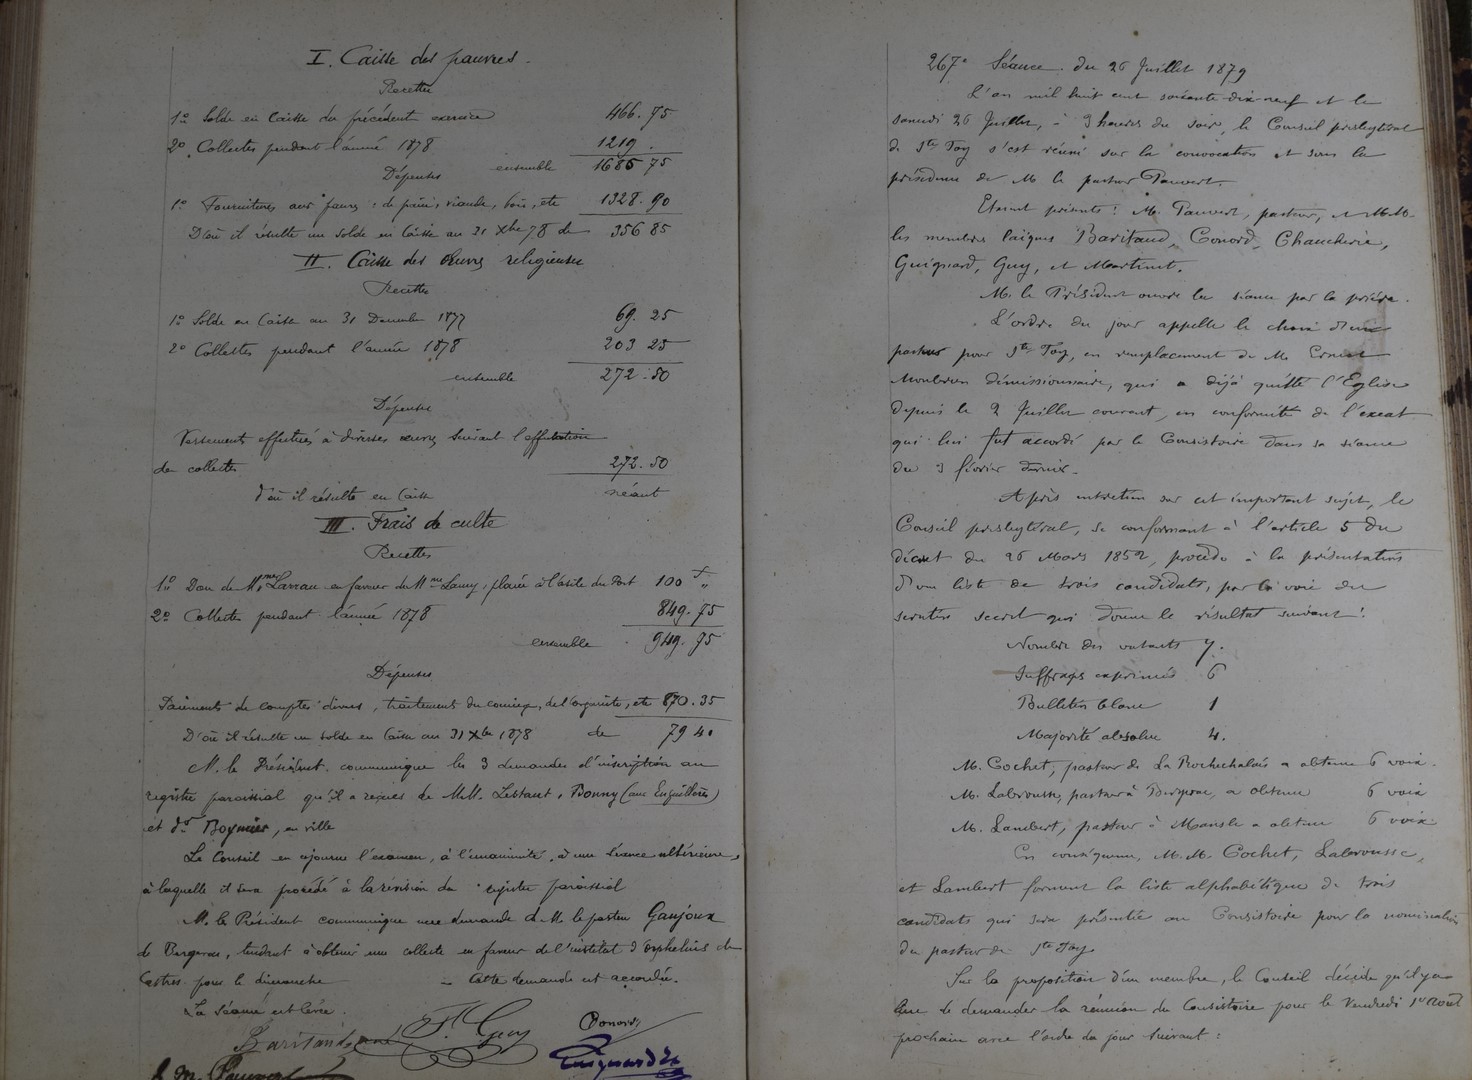 I. Caisse des pauvres.
Recettes
1º Solde en Caisse du précédent exercice 466.75
2º Collectes pendant l'année 1878 1219.
ensemble 1685 75
Dépenses
1º Fournitures aux pauvres : de pain, viande, bois, etc 1328.90
D'où il résulte un solde en Caisse au 31 Xbre 78 de 356 85
II. Caisse des Œuvres religieuses
Recettes
1º Solde en Caisse au 31 Décembre 1877 69.25
2º Collectes pendant l'année 1878 203 25
ensemble 272.50
Dépenses
Versements effectués à diverses œuvres suivant l'affectation
des collectes 272.50
d'où il résulte en Caisse néant
III. Frais de culte
Recettes
1º Don de Mme Larrau en faveur de Mme Lamy, placée à l'asile du Port 100 f "
2º Collectes pendant l'année 1878 849.75
ensemble 949.75
Dépenses
Paiements de comptes divers, traitement du concierge, de l'organiste, etc 870.35
D'où il résulte un solde en Caisse au 31 Xbre 1878 de 79 40
M. le Président communique les 3 demandes d'inscription au
registre paroissial qu'il a reçues de M.M. Lestant, Bonny (aux Enguilloux)
et Boymier, en ville
Le Conseil en ajourne l'examen, à l'unanimité, à une séance ultérieure,
à laquelle il sera procédé à la révision du registre paroissial
M. le Président communique une demande de M. le pasteur Gaujoux
de Bergerac, tendant à obtenir une collecte en faveur de l'institut d'orphelins de
Castres pour le dimanche – Cette demande est accordée.
La séance est levée.
Baritaud F. Guy Conord
Guignard
J. M. Pauvert
267e Séance du 26 Juillet 1879
L'an mil huit cent soixante dix neuf et le
samedi 26 Juillet, à 9 heures du soir, le Conseil presbytéral
de Ste Foy s'est réuni sur la convocation et sous la
présidence de M. le pasteur Pauvert.
Etaient présents : M. Pauvert, pasteur, et M.M.
les membres laïques Baritaud, Conord, Chaucherie,
Guignard, Guy, et Martinet.
M. le Président ouvre la séance par la prière.
L'ordre du jour appelle le choix d'un
pasteur pour Ste Foy, en remplacement de M. Ernest
Monbrun démissionnaire, qui a déjà quitté l'Eglise
depuis le 2 Juillet courant, en conformité de l'exeat
qui lui fut accordé par le Consistoire dans sa séance
du 3 février dernier.
Après entretien sur cet important sujet, le
Conseil presbytéral, se conformant à l'article 5 du
décret du 26 Mars 1852, procède à la présentation
d'une liste de trois candidats, par la voie du
scrutin secret qui donne le résultat suivant :
Nombre des votants 7.
Suffrages exprimés 6
Bulletin blanc 1
Majorité absolue 4.
M. Cochet, pasteur de La Rochechalais a obtenu 6 voix.
M. Labrousse, pasteur à Bergerac, a obtenu 6 voix
M. Lambert, pasteur à Mansle a obtenu 6 voix
En conséquence, M.M. Cochet, Labrousse,
et Lambert forment la liste alphabétique de trois
candidats qui sera présentée au Consistoire pour la nomination
du pasteur de Ste Foy
Sur la proposition d'un membre, le Conseil décide qu'il y a
lieu de demander la réunion du Consistoire pour le Vendredi 1er Août
prochain avec l'ordre du jour suivant :